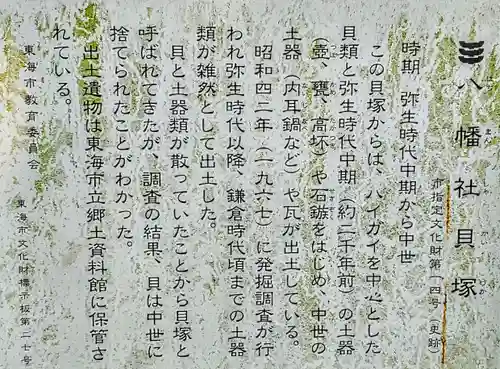 八幡社貝塚
まん しゃ かい づか
市指定文化財第一四号（史跡）
時期　弥生時代中期から中世
この貝塚からは、ハイガイを中心とした
貝類と弥生時代中期（約二千年前）の土器
（壺、甕、高坏）や石鏃をはじめ、中世の
土器（内耳鍋など）や瓦が出土している。
昭和四二年（一九六七）に発掘調査が行
われ弥生時代以降、鎌倉時代頃までの土器
類が雑然として出土した。
貝と土器類が散っていたことから貝塚と
呼ばれてきたが、調査の結果、貝は中世に
捨てられたことがわかった。
出土遺物は東海市立郷土資料館に保管さ
れている。
東海市教育委員会
東海市文化財標示板第二七号